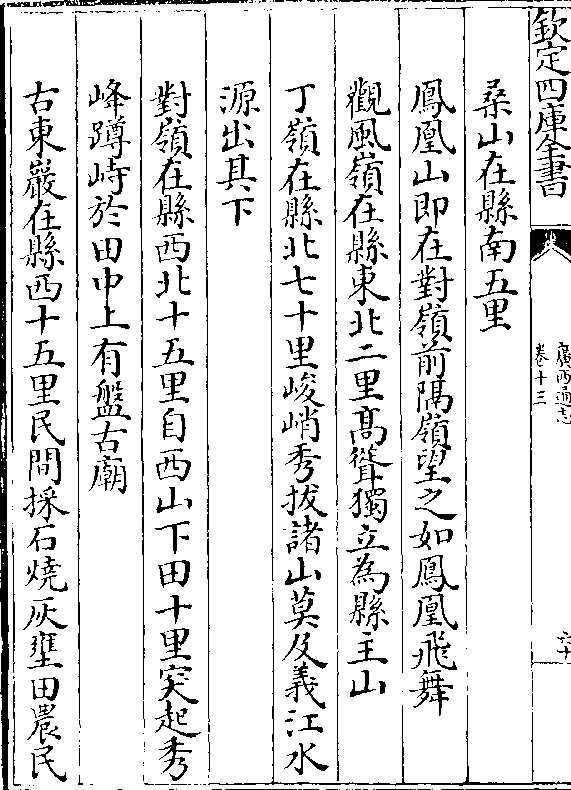 欽定四庫全書
廣西通志
卷十三
六十
桑山在縣南五里
鳳凰山即在對嶺前隔嶺望之如鳳凰飛舞
觀風嶺在縣東北二里髙聳獨立為縣主山
丁嶺在縣北七十里峻峭秀拔諸山莫及義江水
源出其下
對嶺在縣西北十五里自西山下田十里突起秀
峰蹲峙於田中上有盤古廟
古東巖在縣西十五里民間採石燒灰壅田農民